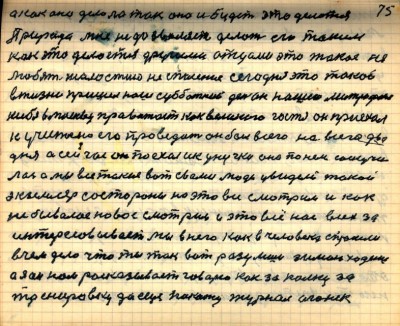 75
а как оно делало так оно и будет это делается
Природа мне не дозволяет делать его таким
как это делается другими отцами это такое не
любят жалостию не спасение сегодня это таков
в жизни пришел наш субботний день он нашего
к себе в Москву как великого гостя он приехал
к учителю его проведать он был всего на всего два
дня а сейчас он поехал к внучки она по нем соскучи
лась мы все такие вот свами люди увидели такой
экземпляр со стороны на это все смотрим и как
небывалое новое смотрим и это всё нас всех за
интересовывает мы в него как в человека спросили
в чем дело что ты так вот разумиш зимою ходиш
а я им нам рассказывает говорю как за палку за
тренировку да еще покажу журнал огонек